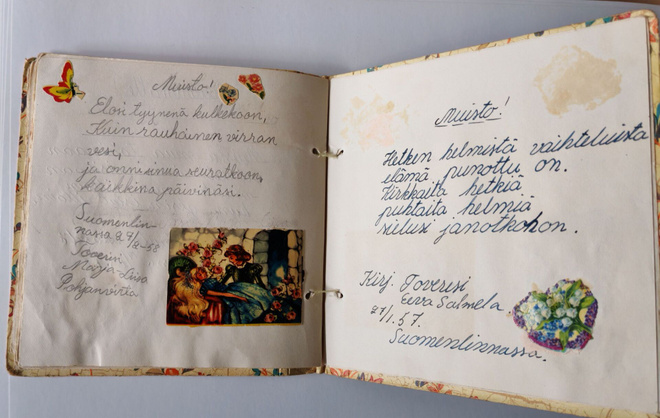 Muisto!
Elosi tyynenä kulkekoon,
Kuin rauhainen virran
vesi,
ja onni sinua seuratkoon,
kaikkina päivinäsi.
Suomenlin-
nassa 27/
2-58
Toverisi
Marja-Liisa
Pohjanvirta
Muisto!
Hetken helmistä vaihteluista
elämä punottu on.
Kirkkaita hetkiä
puhtaita helmiä
sielusi janotkohon.
Kirj. Toverisi
Eeva Salmela
27/1.57.
Suomenlinnassa.